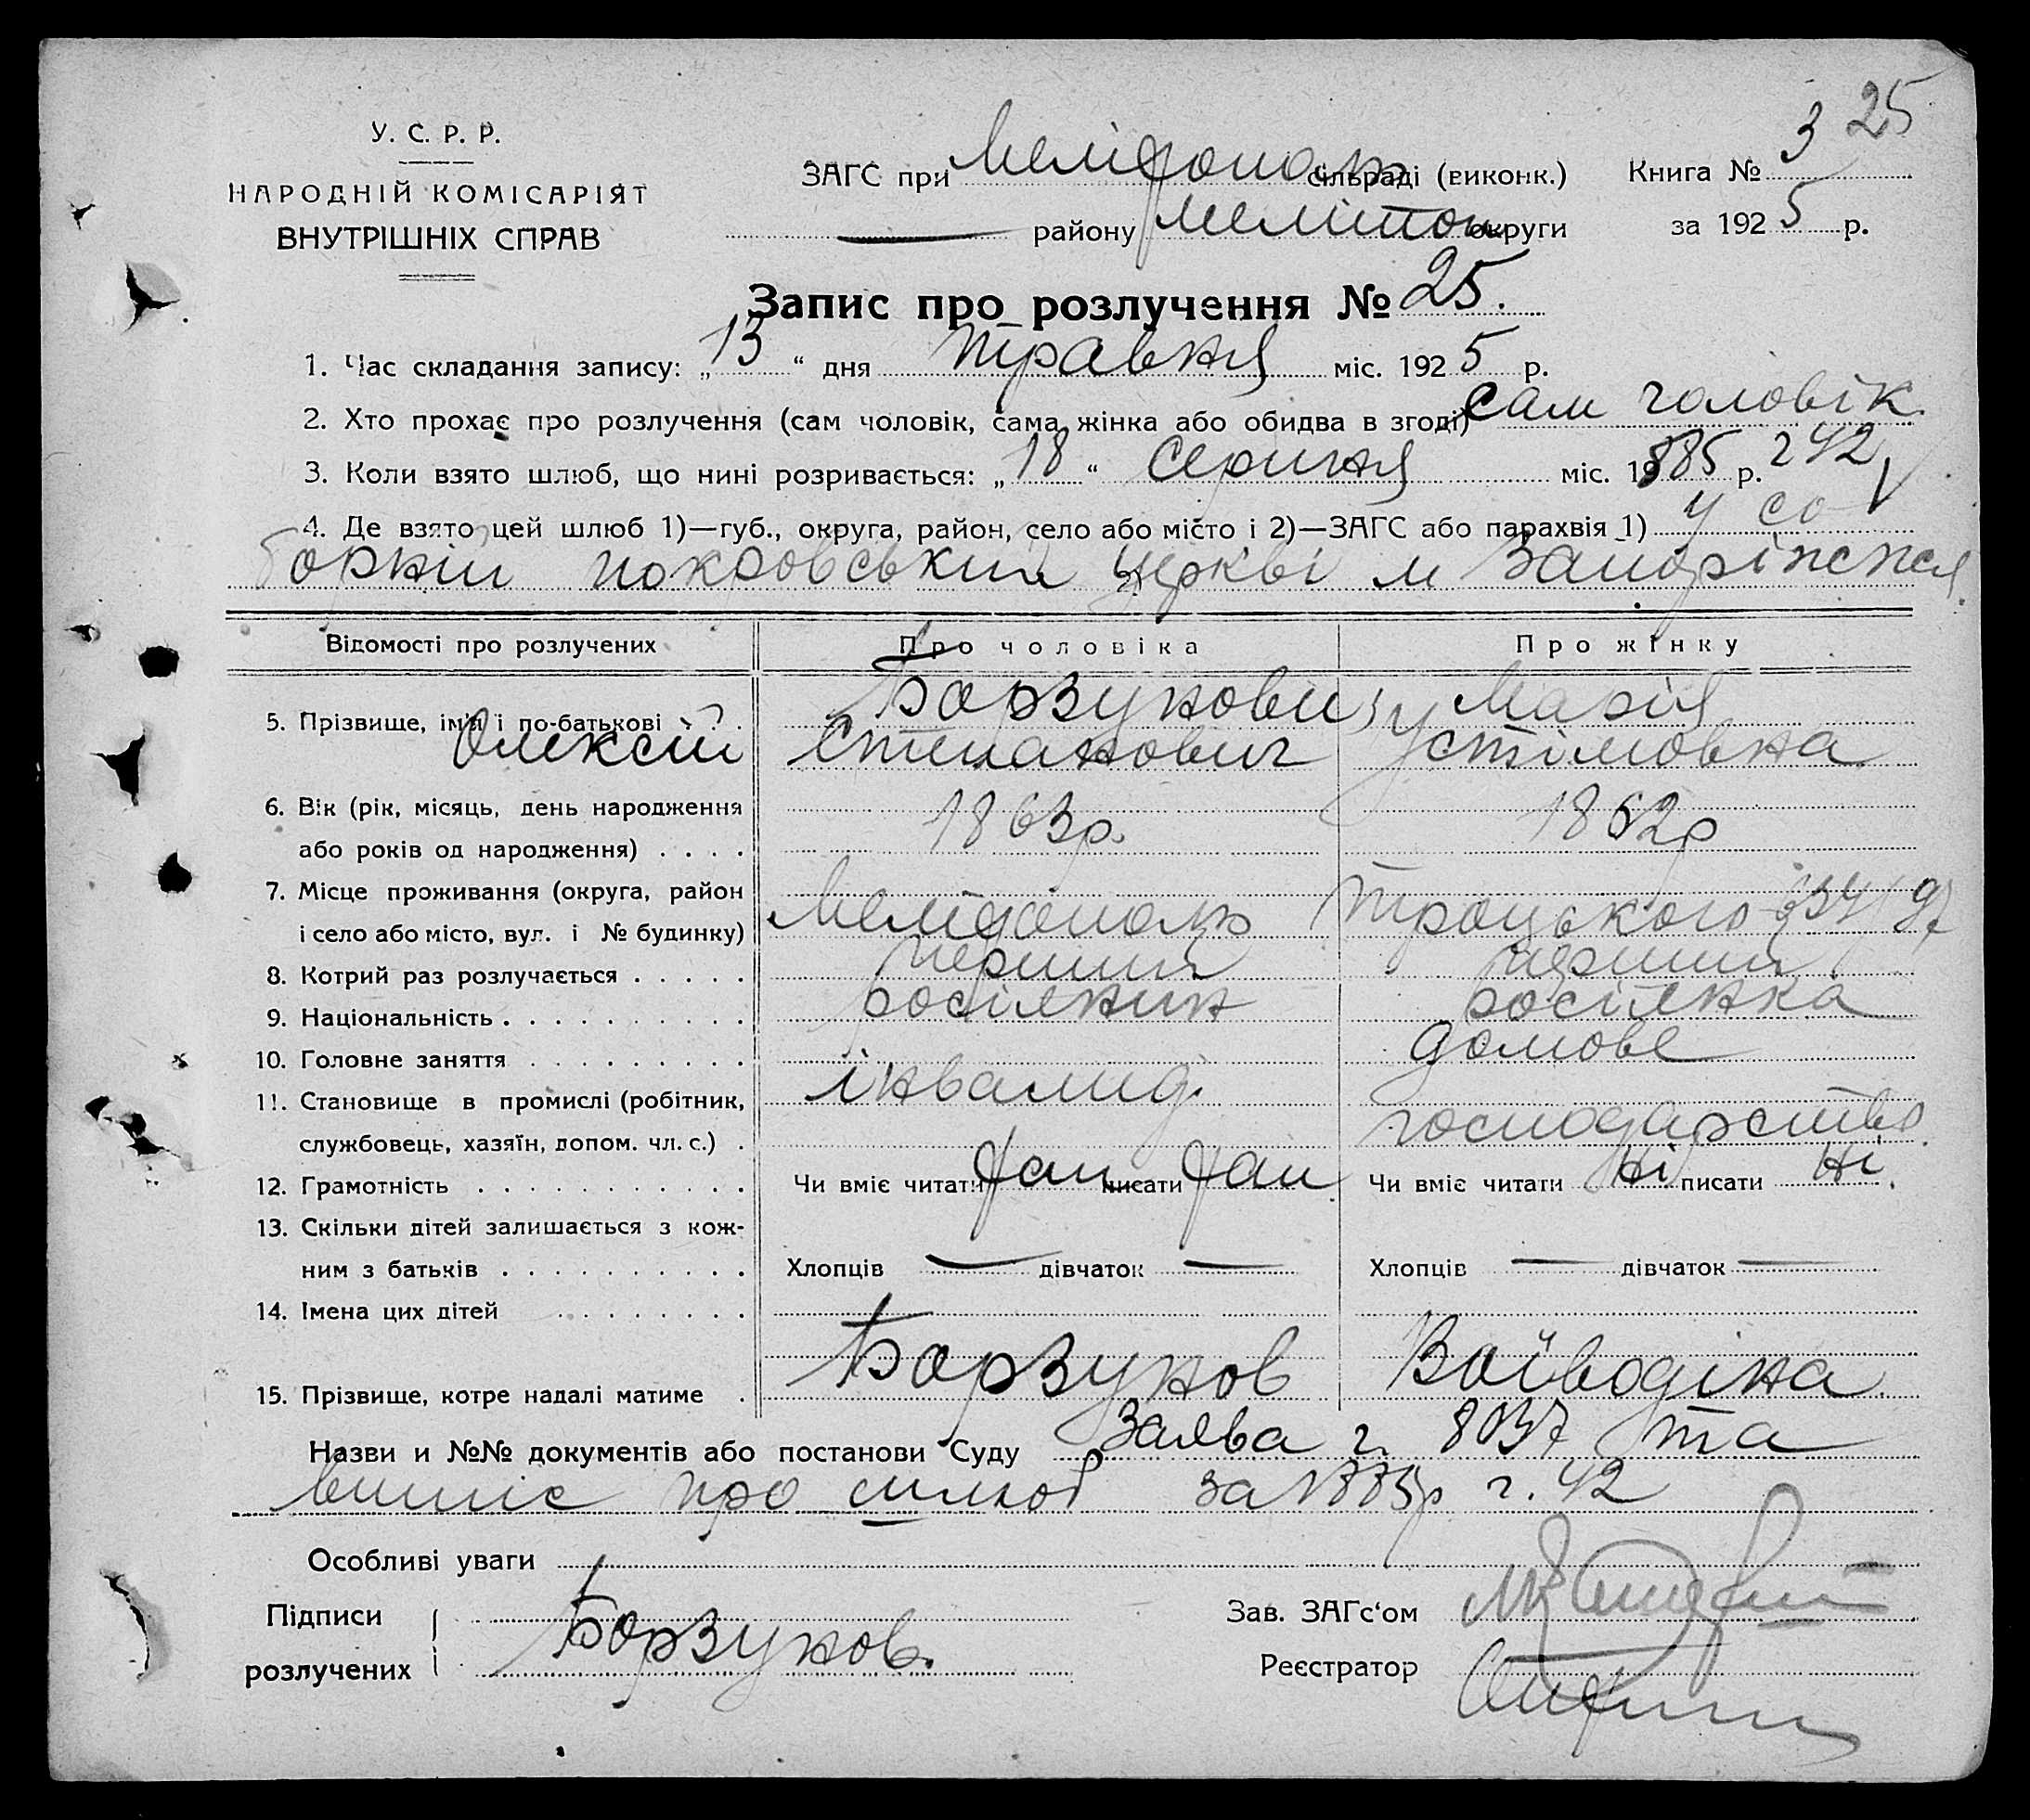 25
У. С. Р. Р.
НАРОДНІЙ КОМІСАРІЯТ
ВНУТРІШНІХ СПРАВ
ЗАГС при Мелітополь сільраді (виконк.) Книга № 3
— району Мелітоп округи за 1925 р.
Запис про розлучення № 25.
1. Час складання запису: „13“ дня травня міс. 1925 р.
2. Хто прохає про розлучення (сам чоловік, сама жінка або обидва в згоді) сам чоловік.
3. Коли взято шлюб, що нині розривається: „18“ серпня міс. 19 885 р. г 42
4. Де взято цей шлюб 1)—губ., округа, район, село або місто і 2)—ЗАГС або парахвія 1) у со
борній покровський церкві м Запоріжжя
Відомості про розлучених Про чоловіка Про жінку
5. Прізвище, ім'я і по-батькові Борзунови Марія
Олексій Степанович Устімовна
6. Вік (рік, місяць, день народження 1863р. 1862р
або років од народження) . . . .
7. Місце проживання (округа, район
і село або місто, вул. і № будинку) Мелітополь Троцького
8. Котрий раз розлучається . . . . . перший перший
9. Національність . . . . . . . . . . росіянин росіянка
10. Головне заняття . . . . . . . . . домове
11. Становище в промислі (робітник, інвалид
службовець, хазяїн, допом. чл. с.) . господарство
12. Грамотність . . . . . . . . . . . Чи вміє читати так писати так Чи вміє читати ні писати ні.
13. Скільки дітей залишається з кож-
ним з батьків . . . . . . . . . . Хлопців — дівчаток — Хлопців — дівчаток —
14. Імена цих дітей . . . . . . . .
15. Прізвище, котре надалі матиме . Борзунов Воїводіна
Назви и №№ документів або постанови Суду Заява г. 8037 та
випіс про шлюб за 1885р г. 42
Особливі уваги
Підписи Зав. ЗАГс'ом
розлучених Борзунов. Реєстратор